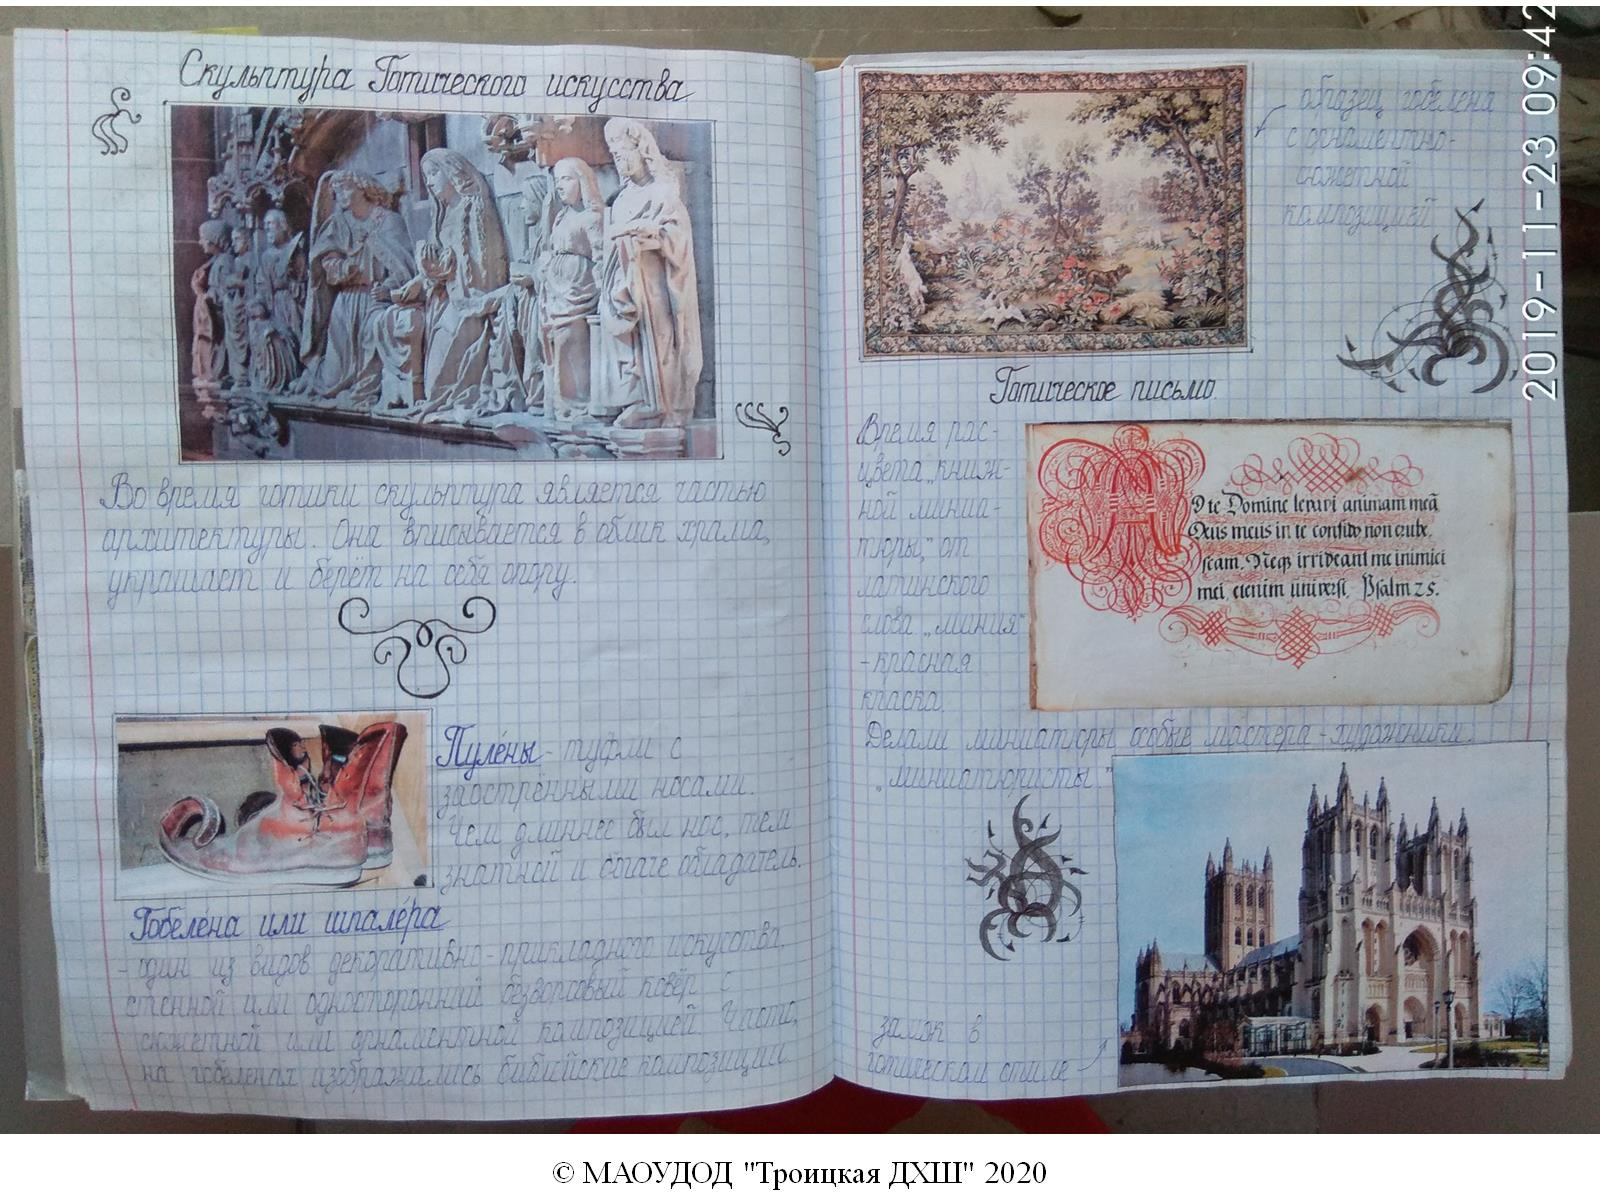 Скульптура Готического искусства.
Во время готики скульптура является частью
архитектуры. Она вписывается в облик храма,
украшает и берёт на себя опору.
Пуле́ны - туфли с
заострёнными носами.
Чем длиннее был нос, тем
знатней и богаче обладатель.
Гобеле́на или шпале́ра
- один из видов декоративно-прикладного искусства.
стенной или односторонний безворсовый ковёр с
сюжетной или орнаментной композицией. Часто,
на гобеленах изображались библейские композиции.
образец гобелена
с орнаментно-
сюжетной
композицией
Готическое письмо.
Время рас-
цвета "книж-
ной миниа-
тюры," от
латинского
слова "миния"
- красная
краска.
AD te Domine levavi animam meã
Deus meus in te confido non erube,
scam. Neqz irrideant me inimici
mei, etenim universi, Psalm 25.
Делали миниатюры особые мастера - художники.
"миниатюристы"
замок в
готическом стиле
2019-11-23 09:42
© МАОУДОД "Троицкая ДХШ" 2020